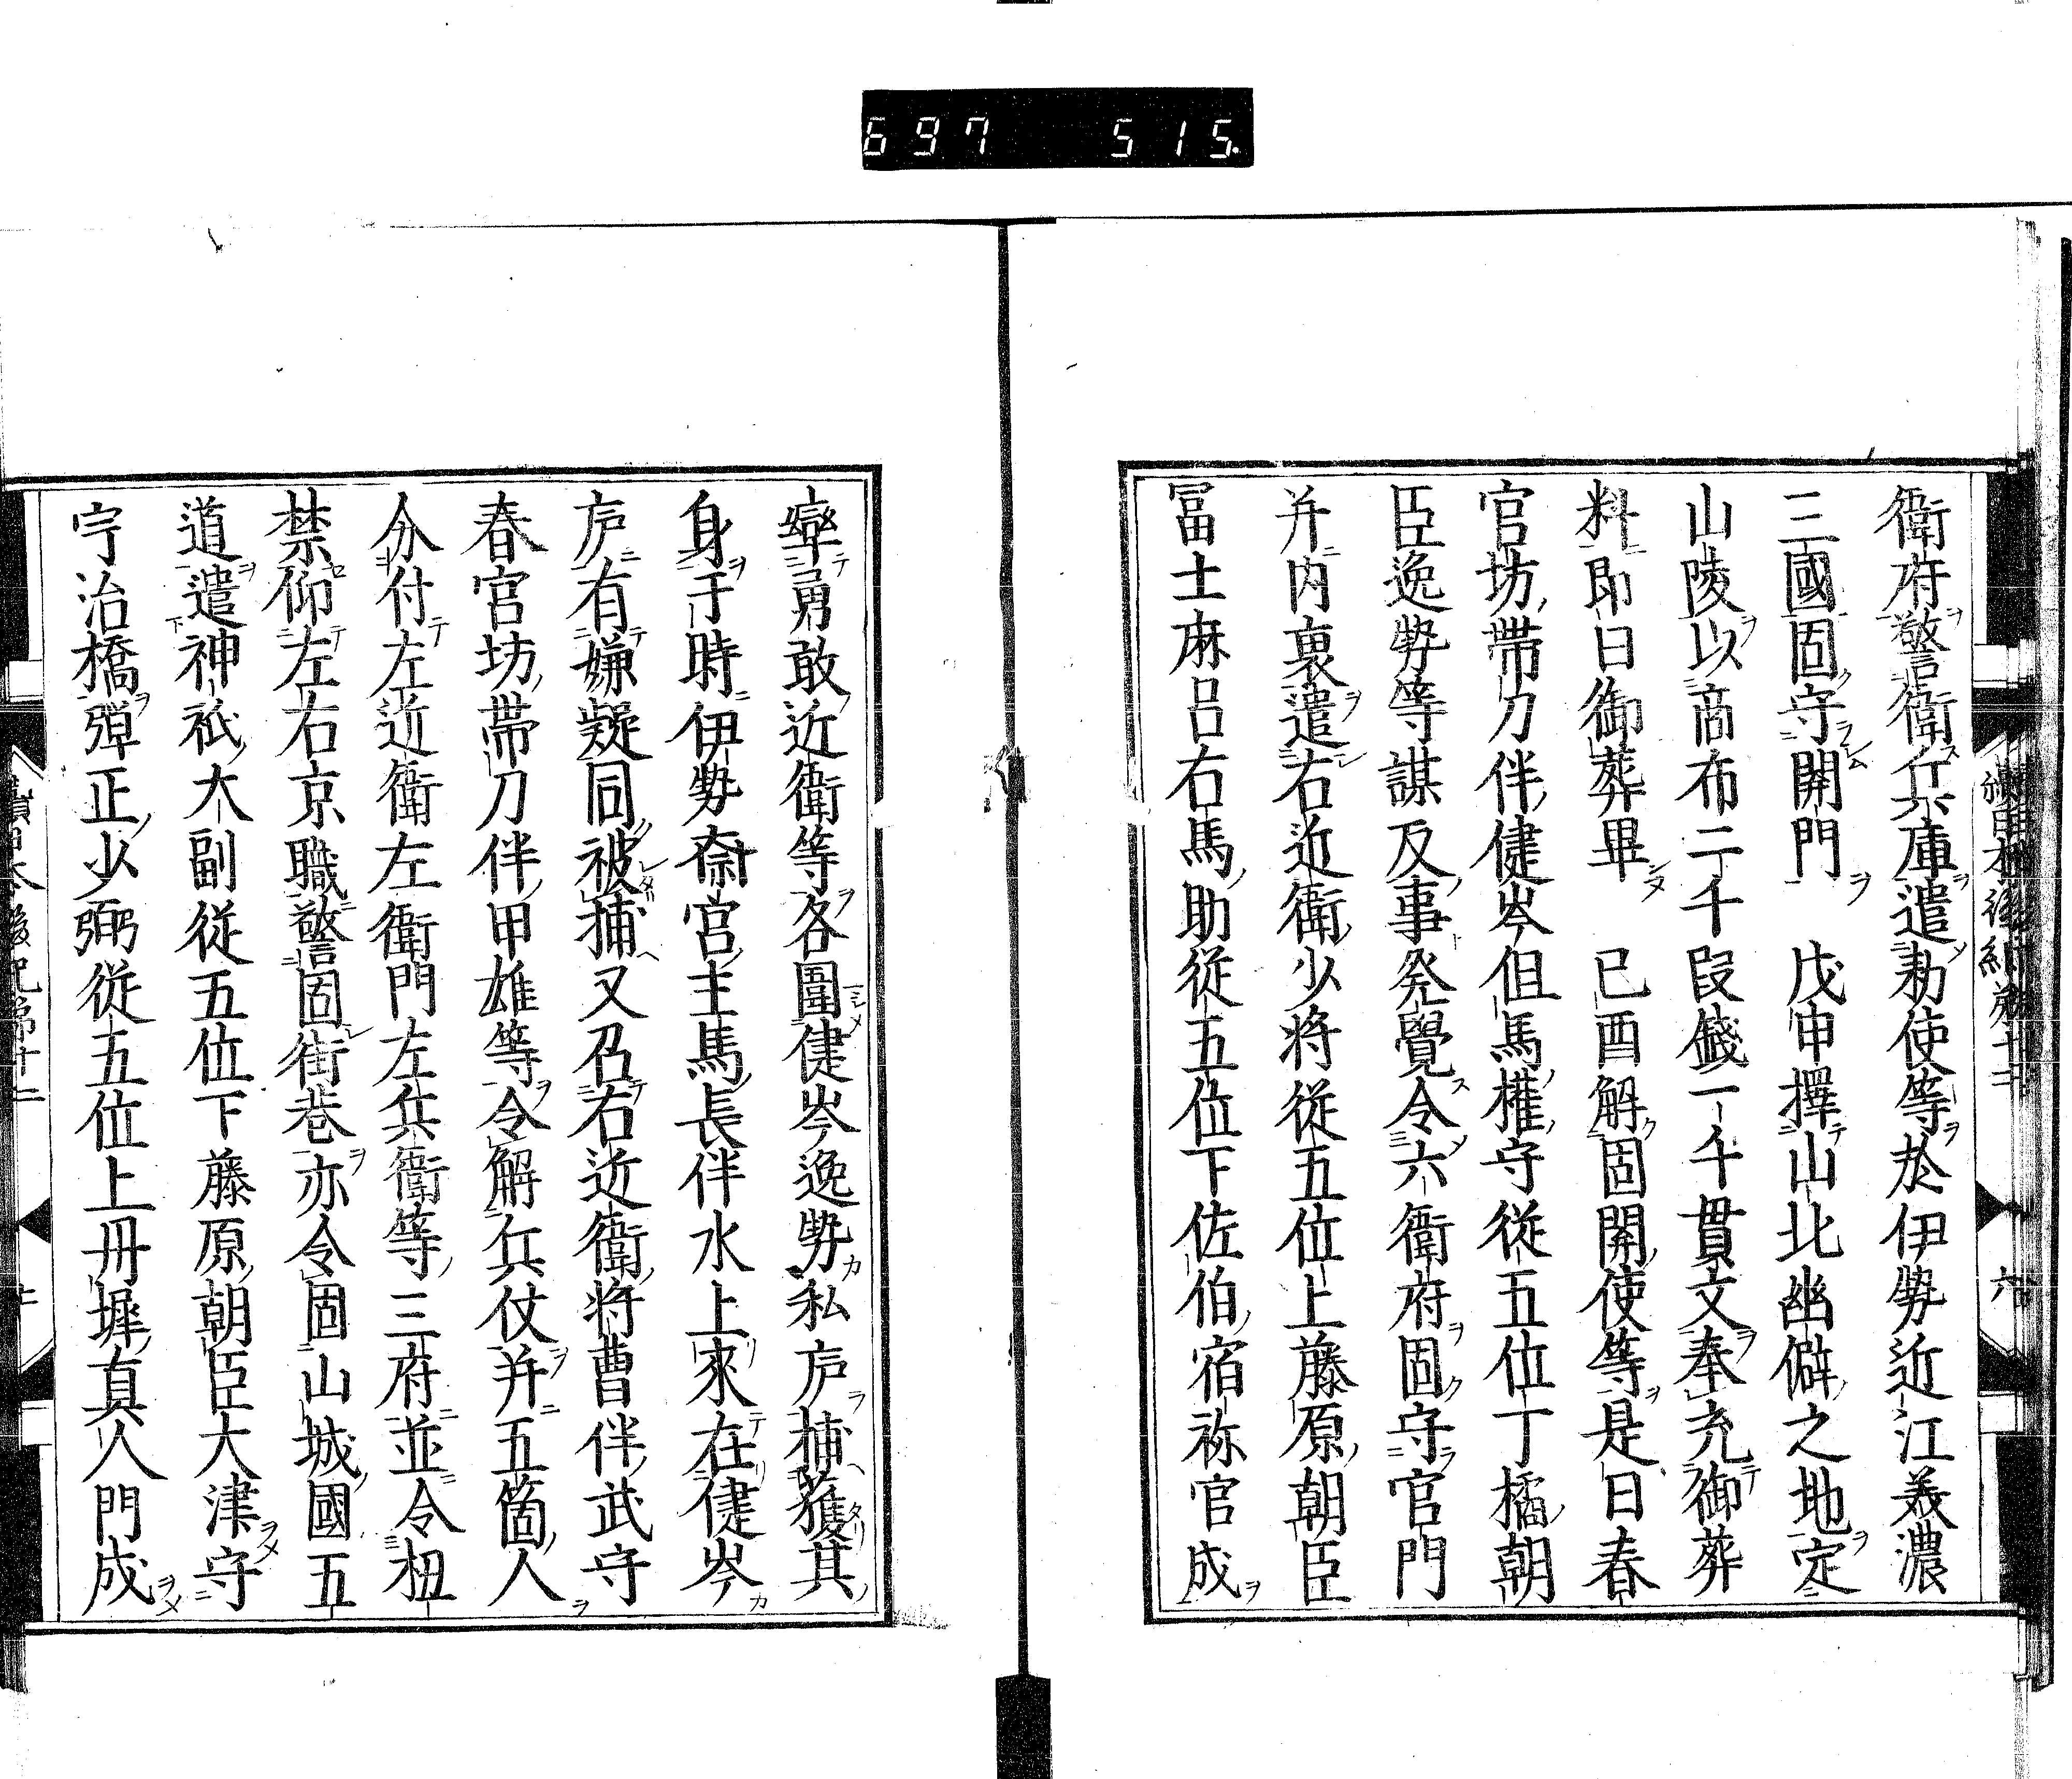 697 515
衞府警衞兵庫遣勅使等於伊勢近江美濃
三國固守關門 戊申擇山北幽僻之地定
山陵以商布二千段錢一千貫文奉充御葬
料即日御葬畢 己酉解固關使等是日春
宮坊帶刀伴健岑但馬權守從五位下橘朝
臣逸勢等謀反事発覺令六衞府固守宮門
并内裏遣右近衞少将從五位上藤原朝臣
冨士麻呂右馬助從五位下佐伯宿祢宮成
率勇敢近衞等各圍健岑逸勢私庐捕獲其
身于時伊勢斎宮主馬長伴水上來在健岑
庐有嫌疑同被捕又召右近衞将曹伴武守
春宮坊帶刀伴甲雄等令解兵仗并五箇人
分付左近衞左衞門左兵衞等三府並令杻
禁仰左右京職警固街巷亦令固山城國五
道遣神祇大副從五位下藤原朝臣大津守
宇治橋彈正少弼從五位上丹墀真人門成
續日本後紀第十二
六
續日本後紀第十二
七